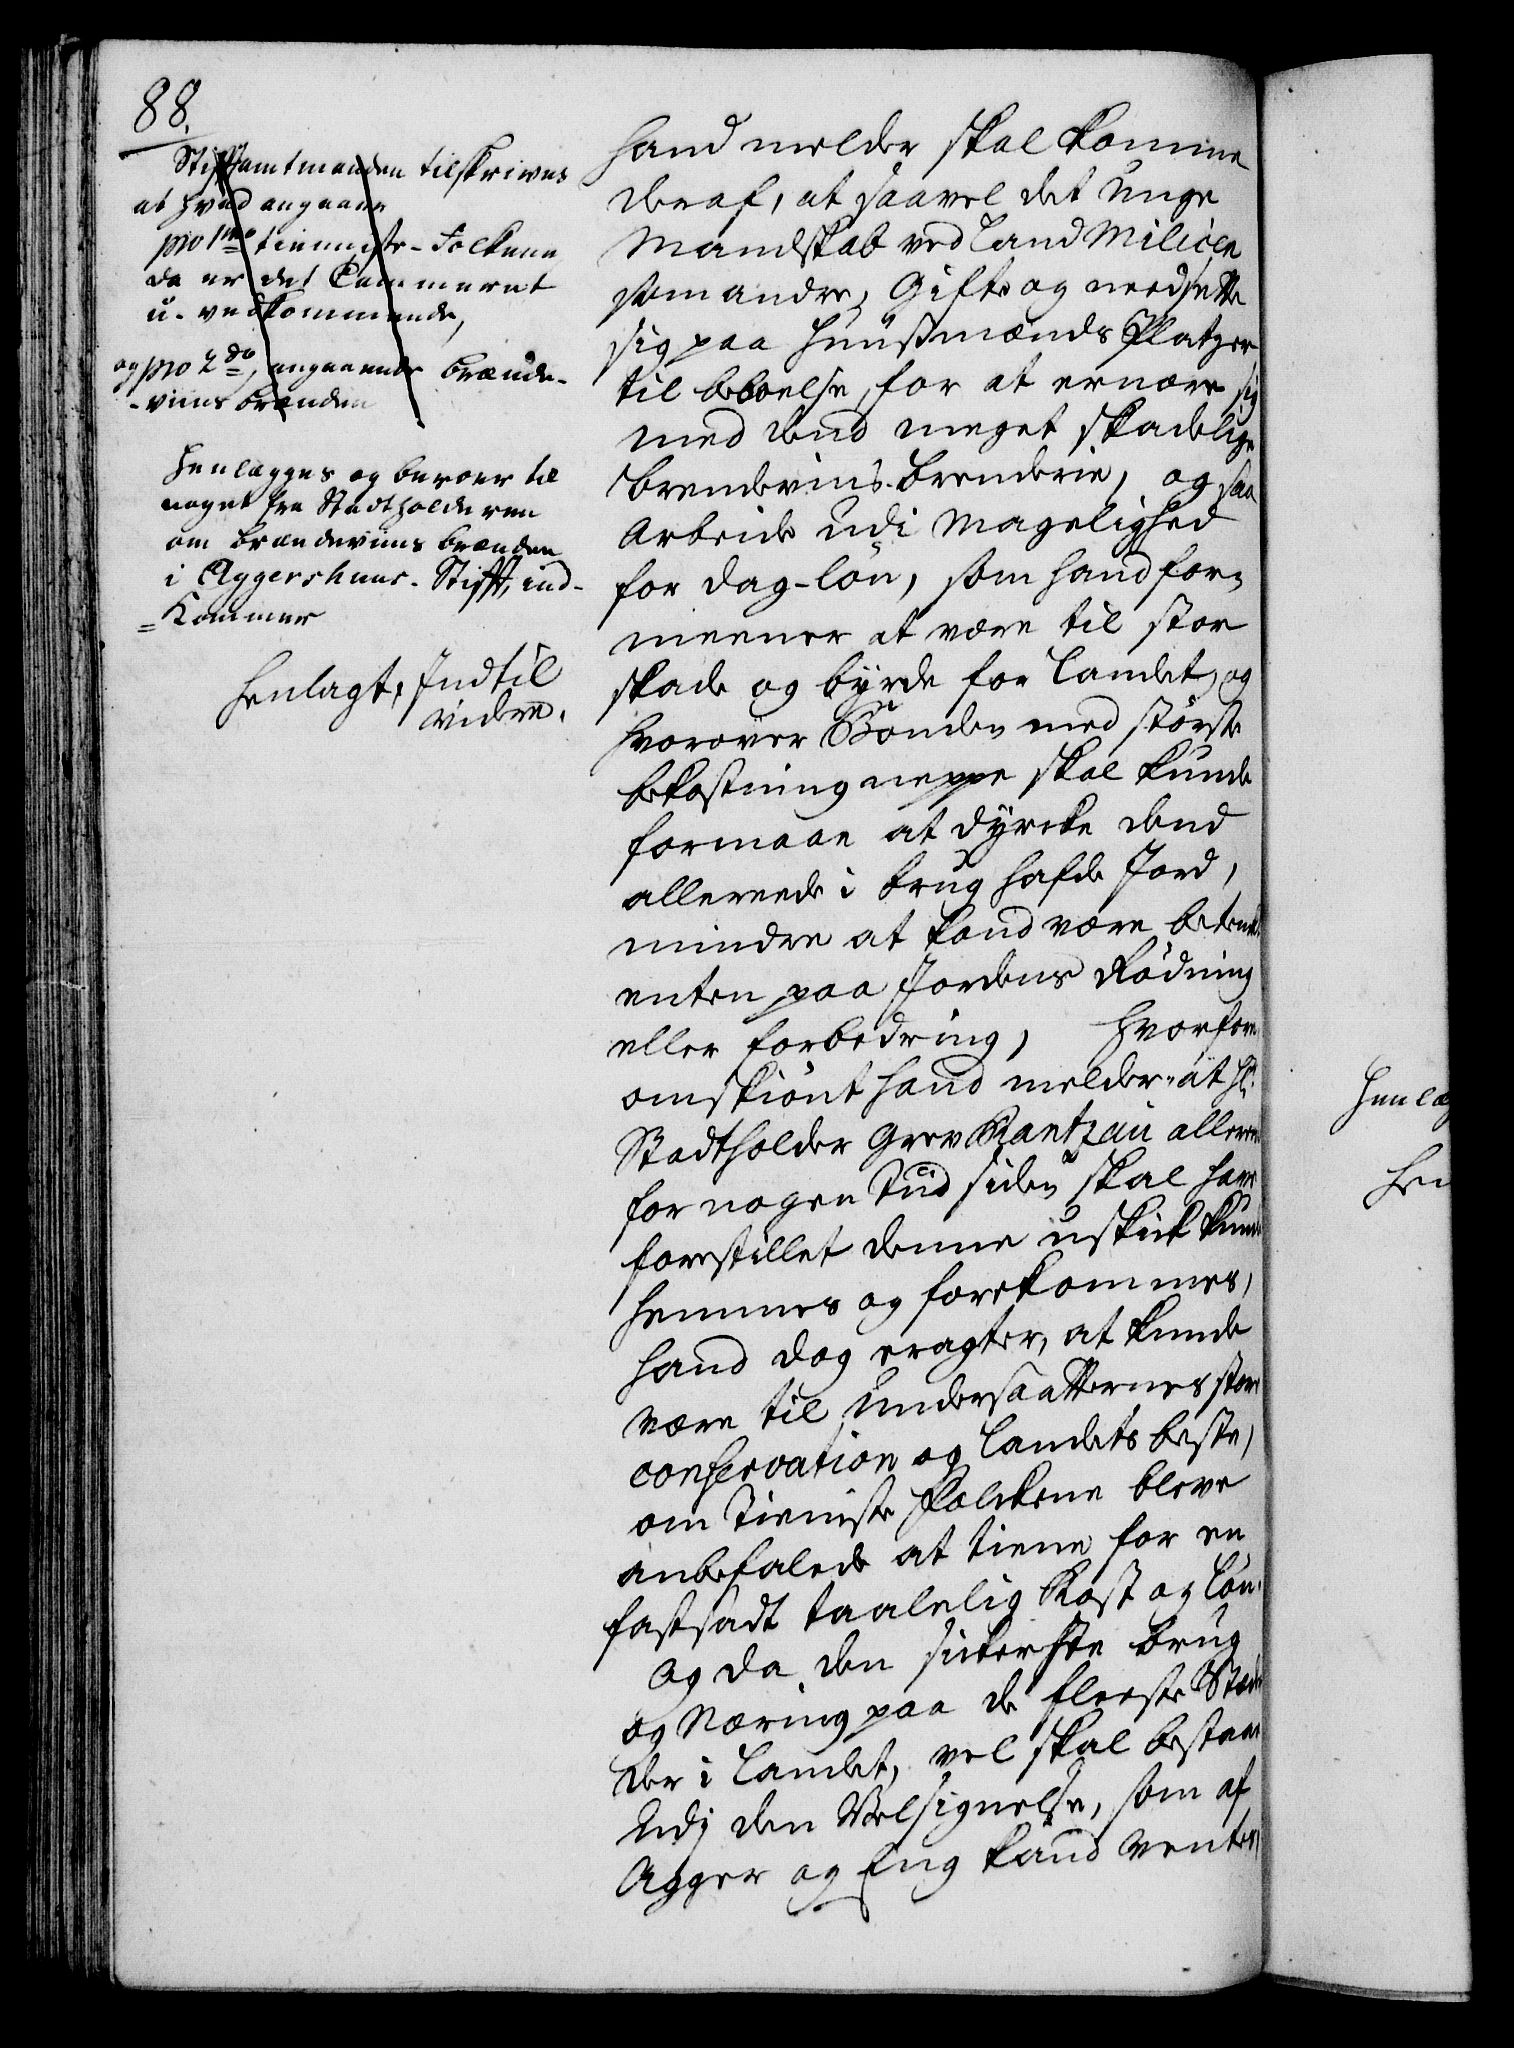 88.
Stiftamtmanden tilskrives
at hvad angaaer
pro 1mo tienniste-Folkene
da er det Cammeret
u-vedkommende,
og pro 2do, angaaende brænde-
-viins brænden
Henlægges og beroer til
noget fra Stadtholderen
om brændeviins brænden
i Aggershuus-Stifft, ind-
=Kommer
Henlagt, Indtil
videre.
hand melder skal komme
deraf, at saavel det unge
Mandskab ved Land Milicen
som andre, Gifte og needsette
sig paa Huusmænds Platzer
til beboelse, for at ernære sig
med dend meget skadelige
brendeviins-brenderie, og saa
Arbeide udi Magelighed
for dag-løn, som hand for-
meener at være til stor
skade og byrde for Landet, og
hvorover Bonden med største
bekostning neppe skal kunde
formaae at dyrcke dend
allereede i brug hafde Jord,
mindre at kand være betenkt
enten paa Jordens Rødning
eller forbedring, hvorfore
omskiønt hand melder at Hr.
Stadtholder Grev Rantzau allerede
for nogen Tiid siden skal have
forestillet denne uskik kunde
hemmes og forekommes,
hand dog eragter, at kunde
være til undersaatternes store
conservation og Landets beste,
om Tieniste Folckene bleve
anbefalede at tiene for en
fastsadt taalelig Kost og Løn.
Og da den sikerste brug
og Næring paa de fleeste Stæder
der i Landet, vel skal bestaae
udj den Velsignelse, som af
Agger og Eng kand ventes,
Henlæg
Hen